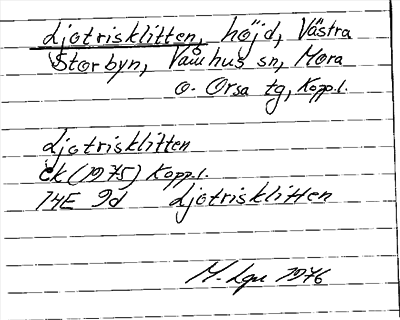 Ljotrisklitten, höjd, Västra
Storbyn, Våmhus sn, Mora
o. Orsa tg, Kopp.l.
Ljotrisklitten
Ek (1975) Kopp.l.
14E 9d Ljotrisklitten
M. 1976